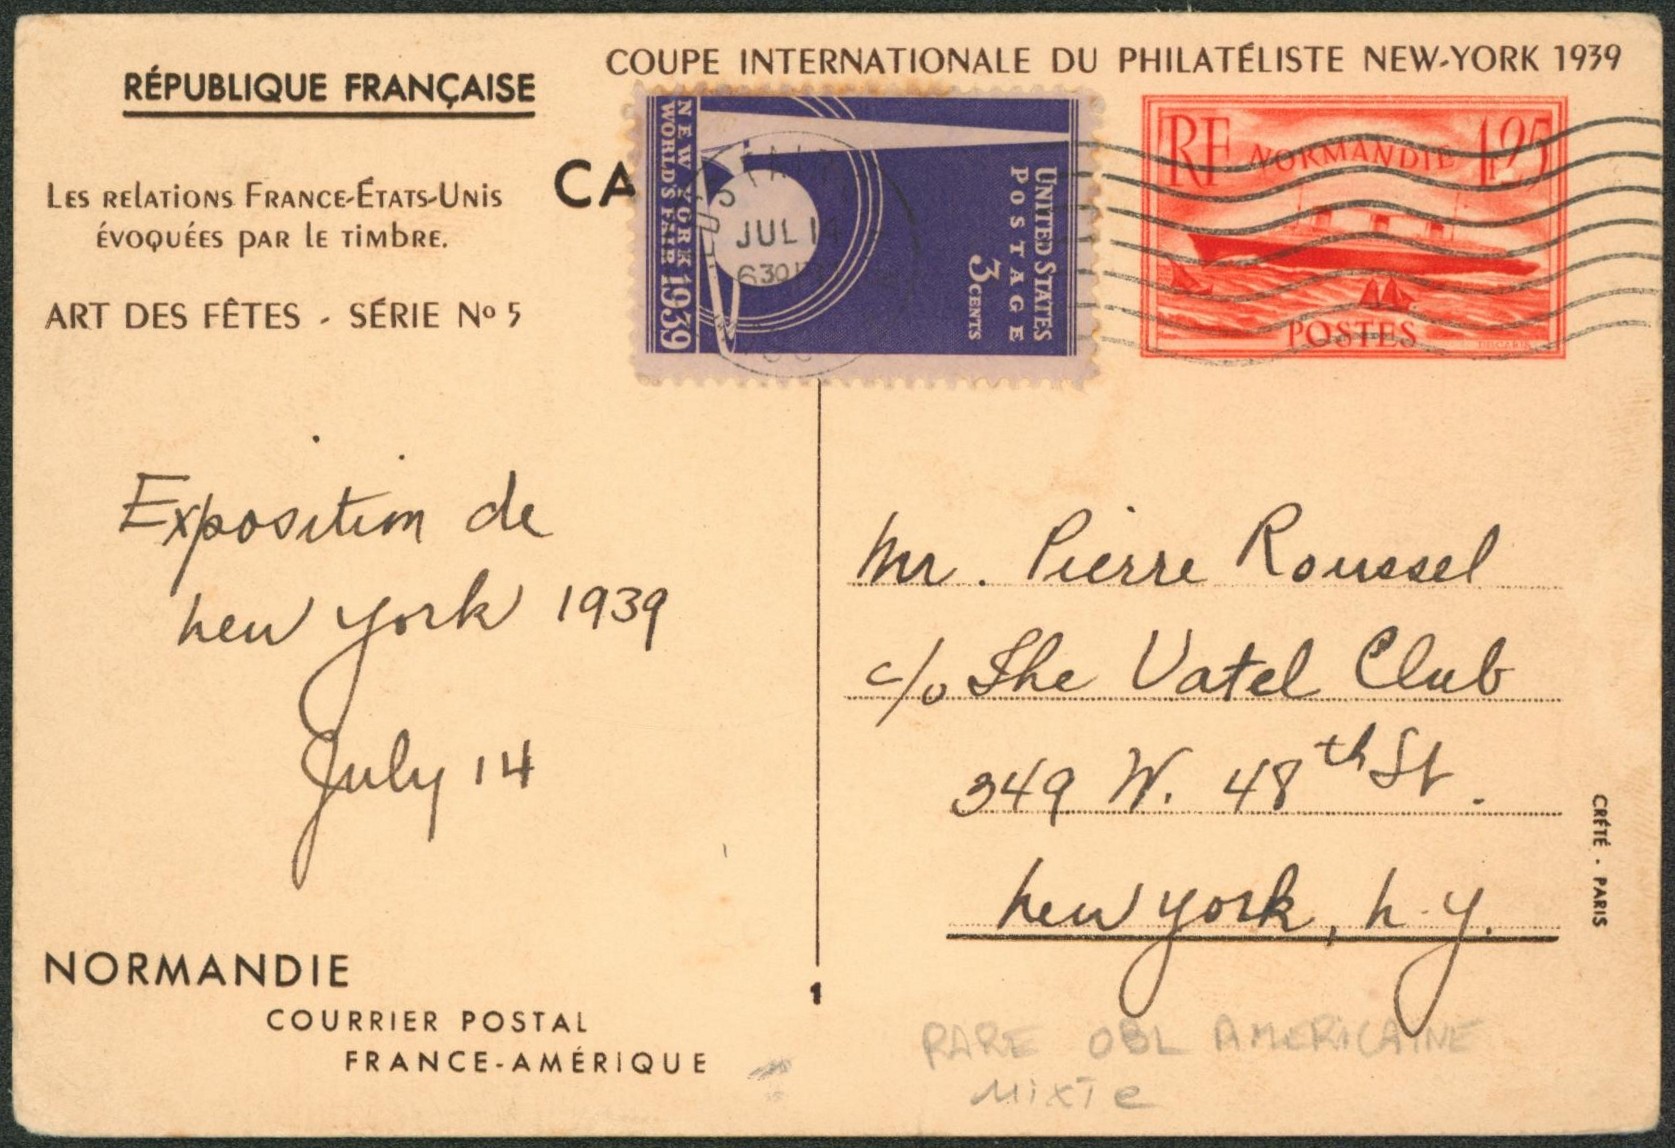 COUPE INTERNATIONALE DU PHILATÉLISTE NEW-YORK 1939
RÉPUBLIQUE FRANÇAISE
LES RELATIONS FRANCE-ÉTATS-UNIS
ÉVOQUÉES PAR LE TIMBRE.
ART DES FÊTES - SÉRIE Nº 5
CA
NEW YORK
WORLD'S FAIR 1939
UNITED STATES
POSTAGE
3 CENTS
JUL 14
630
RF NORMANDIE 1,25
POSTES
Exposition de
New York 1939
July 14
Mr. Pierre Roussel
c/o The Vatel Club
349 W. 48th St.
New York, N.Y.
CRÉTÉ - PARIS
NORMANDIE
COURRIER POSTAL
FRANCE-AMÉRIQUE
1
RARE OBL AMERICAINE
MIXTE